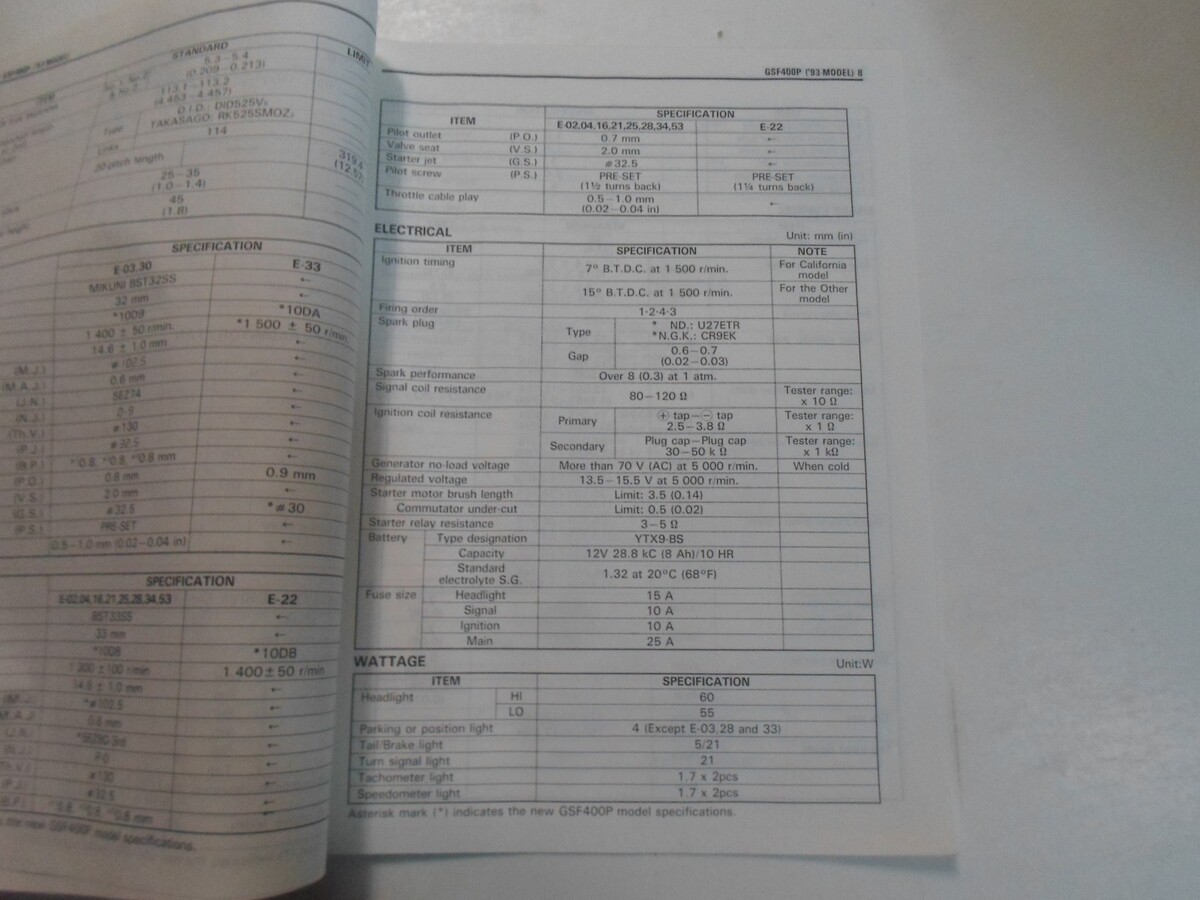 STANDARD
LIMIT
5.3–5.4
(0.209–0.213)
113.1–113.2
(4.453–4.457)
D.I.D.: DID525V₈
Type TAKASAGO: RK525SMOZ₂
Links 114
20-pitch length
319.4
25–35
(1.0–1.4)
45
(1.8)
SPECIFICATION
E-03,30 E-33
MIKUNI BST32SS ←
32 mm ←
*10D9 *10DA
1 400 ± 50 r/min. *1 500 ± 50 r/min.
14.6 ± 1.0 mm ←
(M.J.) #102.5 ←
(M.A.J.) 0.6 mm ←
(J.N.) 5EZ74 ←
(N.J.) ←
(Th.V.) #130 ←
(P.J.) #32.5 ←
(B.P.) *¹0.8, *²0.8, *³0.8 mm ←
(P.O.) 0.8 mm 0.9 mm
(V.S.) 2.0 mm ←
(G.S.) #32.5 *#30
(P.S.) PRE-SET ←
0.5–1.0 mm (0.02–0.04 in) ←
SPECIFICATION
E-02,04,16,21,25,28,34,53 E-22
BST33SS ←
33 mm ←
*10D8 *10DB
1 400±50 r/min
14.6 ± 1.0 mm ←
*#102.5 ←
0.6 mm ←
←
←
#130 ←
#32.5 ←
←
the new GSF400P model specifications.
GSF400P ('93-MODEL) 8
ITEM SPECIFICATION
E-02,04,16,21,25,28,34,53 E-22
Pilot outlet (P.O.) 0.7 mm ←
Valve seat (V.S.) 2.0 mm ←
Starter jet (G.S.) #32.5 ←
Pilot screw (P.S.) PRE-SET PRE-SET
(1½ turns back) (1¼ turns back)
Throttle cable play 0.5–1.0 mm ←
(0.02–0.04 in)
ELECTRICAL Unit: mm (in)
ITEM SPECIFICATION NOTE
Ignition timing 7° B.T.D.C. at 1 500 r/min. For California
model
15° B.T.D.C. at 1 500 r/min. For the Other
model
Firing order 1·2·4·3
Spark plug Type * ND.: U27ETR
*N.G.K.: CR9EK
Gap 0.6–0.7
(0.02–0.03)
Spark performance Over 8 (0.3) at 1 atm.
Signal coil resistance 80–120 Ω Tester range:
x 10 Ω
Ignition coil resistance Primary ⊕ tap–⊖ tap Tester range:
2.5–3.8 Ω x 1 Ω
Secondary Plug cap–Plug cap Tester range:
30–50 k Ω x 1 kΩ
Generator no-load voltage More than 70 V (AC) at 5 000 r/min. When cold
Regulated voltage 13.5–15.5 V at 5 000 r/min.
Starter motor brush length Limit: 3.5 (0.14)
Commutator under-cut Limit: 0.5 (0.02)
Starter relay resistance 3–5 Ω
Battery Type designation YTX9-BS
Capacity 12V 28.8 kC (8 Ah)/10 HR
Standard
electrolyte S.G. 1.32 at 20°C (68°F)
Fuse size Headlight 15 A
Signal 10 A
Ignition 10 A
Main 25 A
WATTAGE Unit:W
ITEM SPECIFICATION
Headlight HI 60
LO 55
Parking or position light 4 (Except E-03,28 and 33)
Tail/Brake light 5/21
Turn signal light 21
Tachometer light 1.7 x 2pcs
Speedometer light 1.7 x 2pcs
Asterisk mark (*) indicates the new GSF400P model specifications.